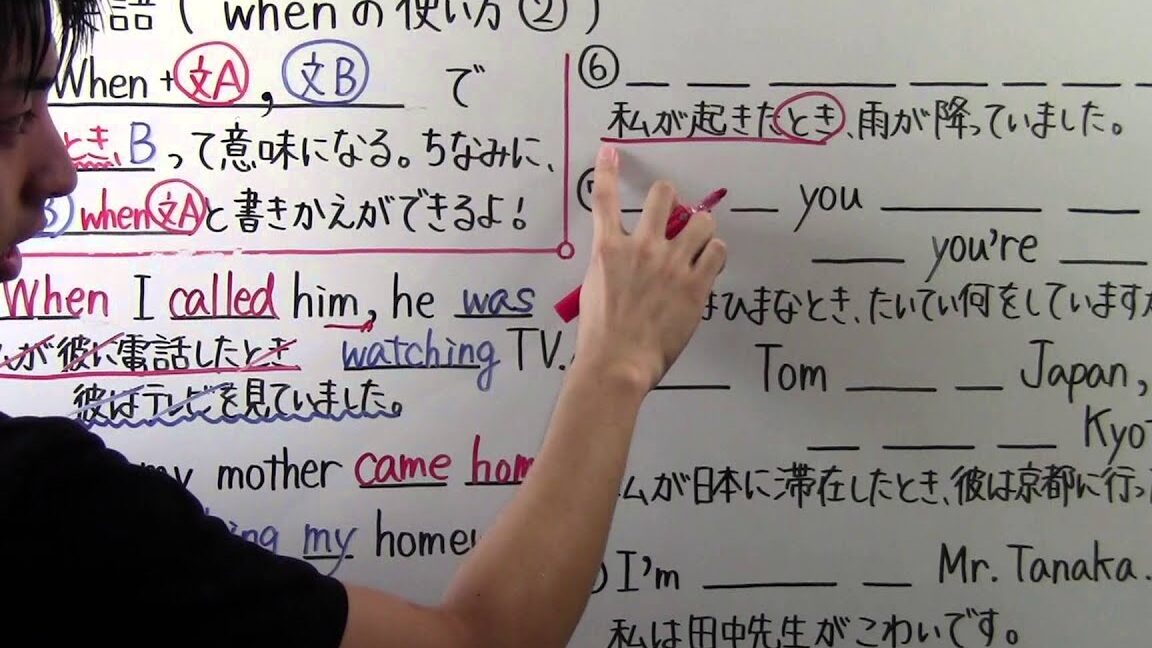 語(whenの使い方②)
When+文A, 文B で
とき、Bって意味になる。ちなみに、
B when文Aと書きかえができるよ!
When I called him, he was
watching TV.
が彼に電話したとき
彼はテレビを見ていました。
my mother came hom
my home
⑥
私が起きたとき、雨が降っていました。
you
you're
はひまなとき、たいてい何をしています
Tom Japan,
Kyo
私が日本に滞在したとき、彼は京都に行っ
I'm Mr. Tanaka.
私は田中先生がこわいです。